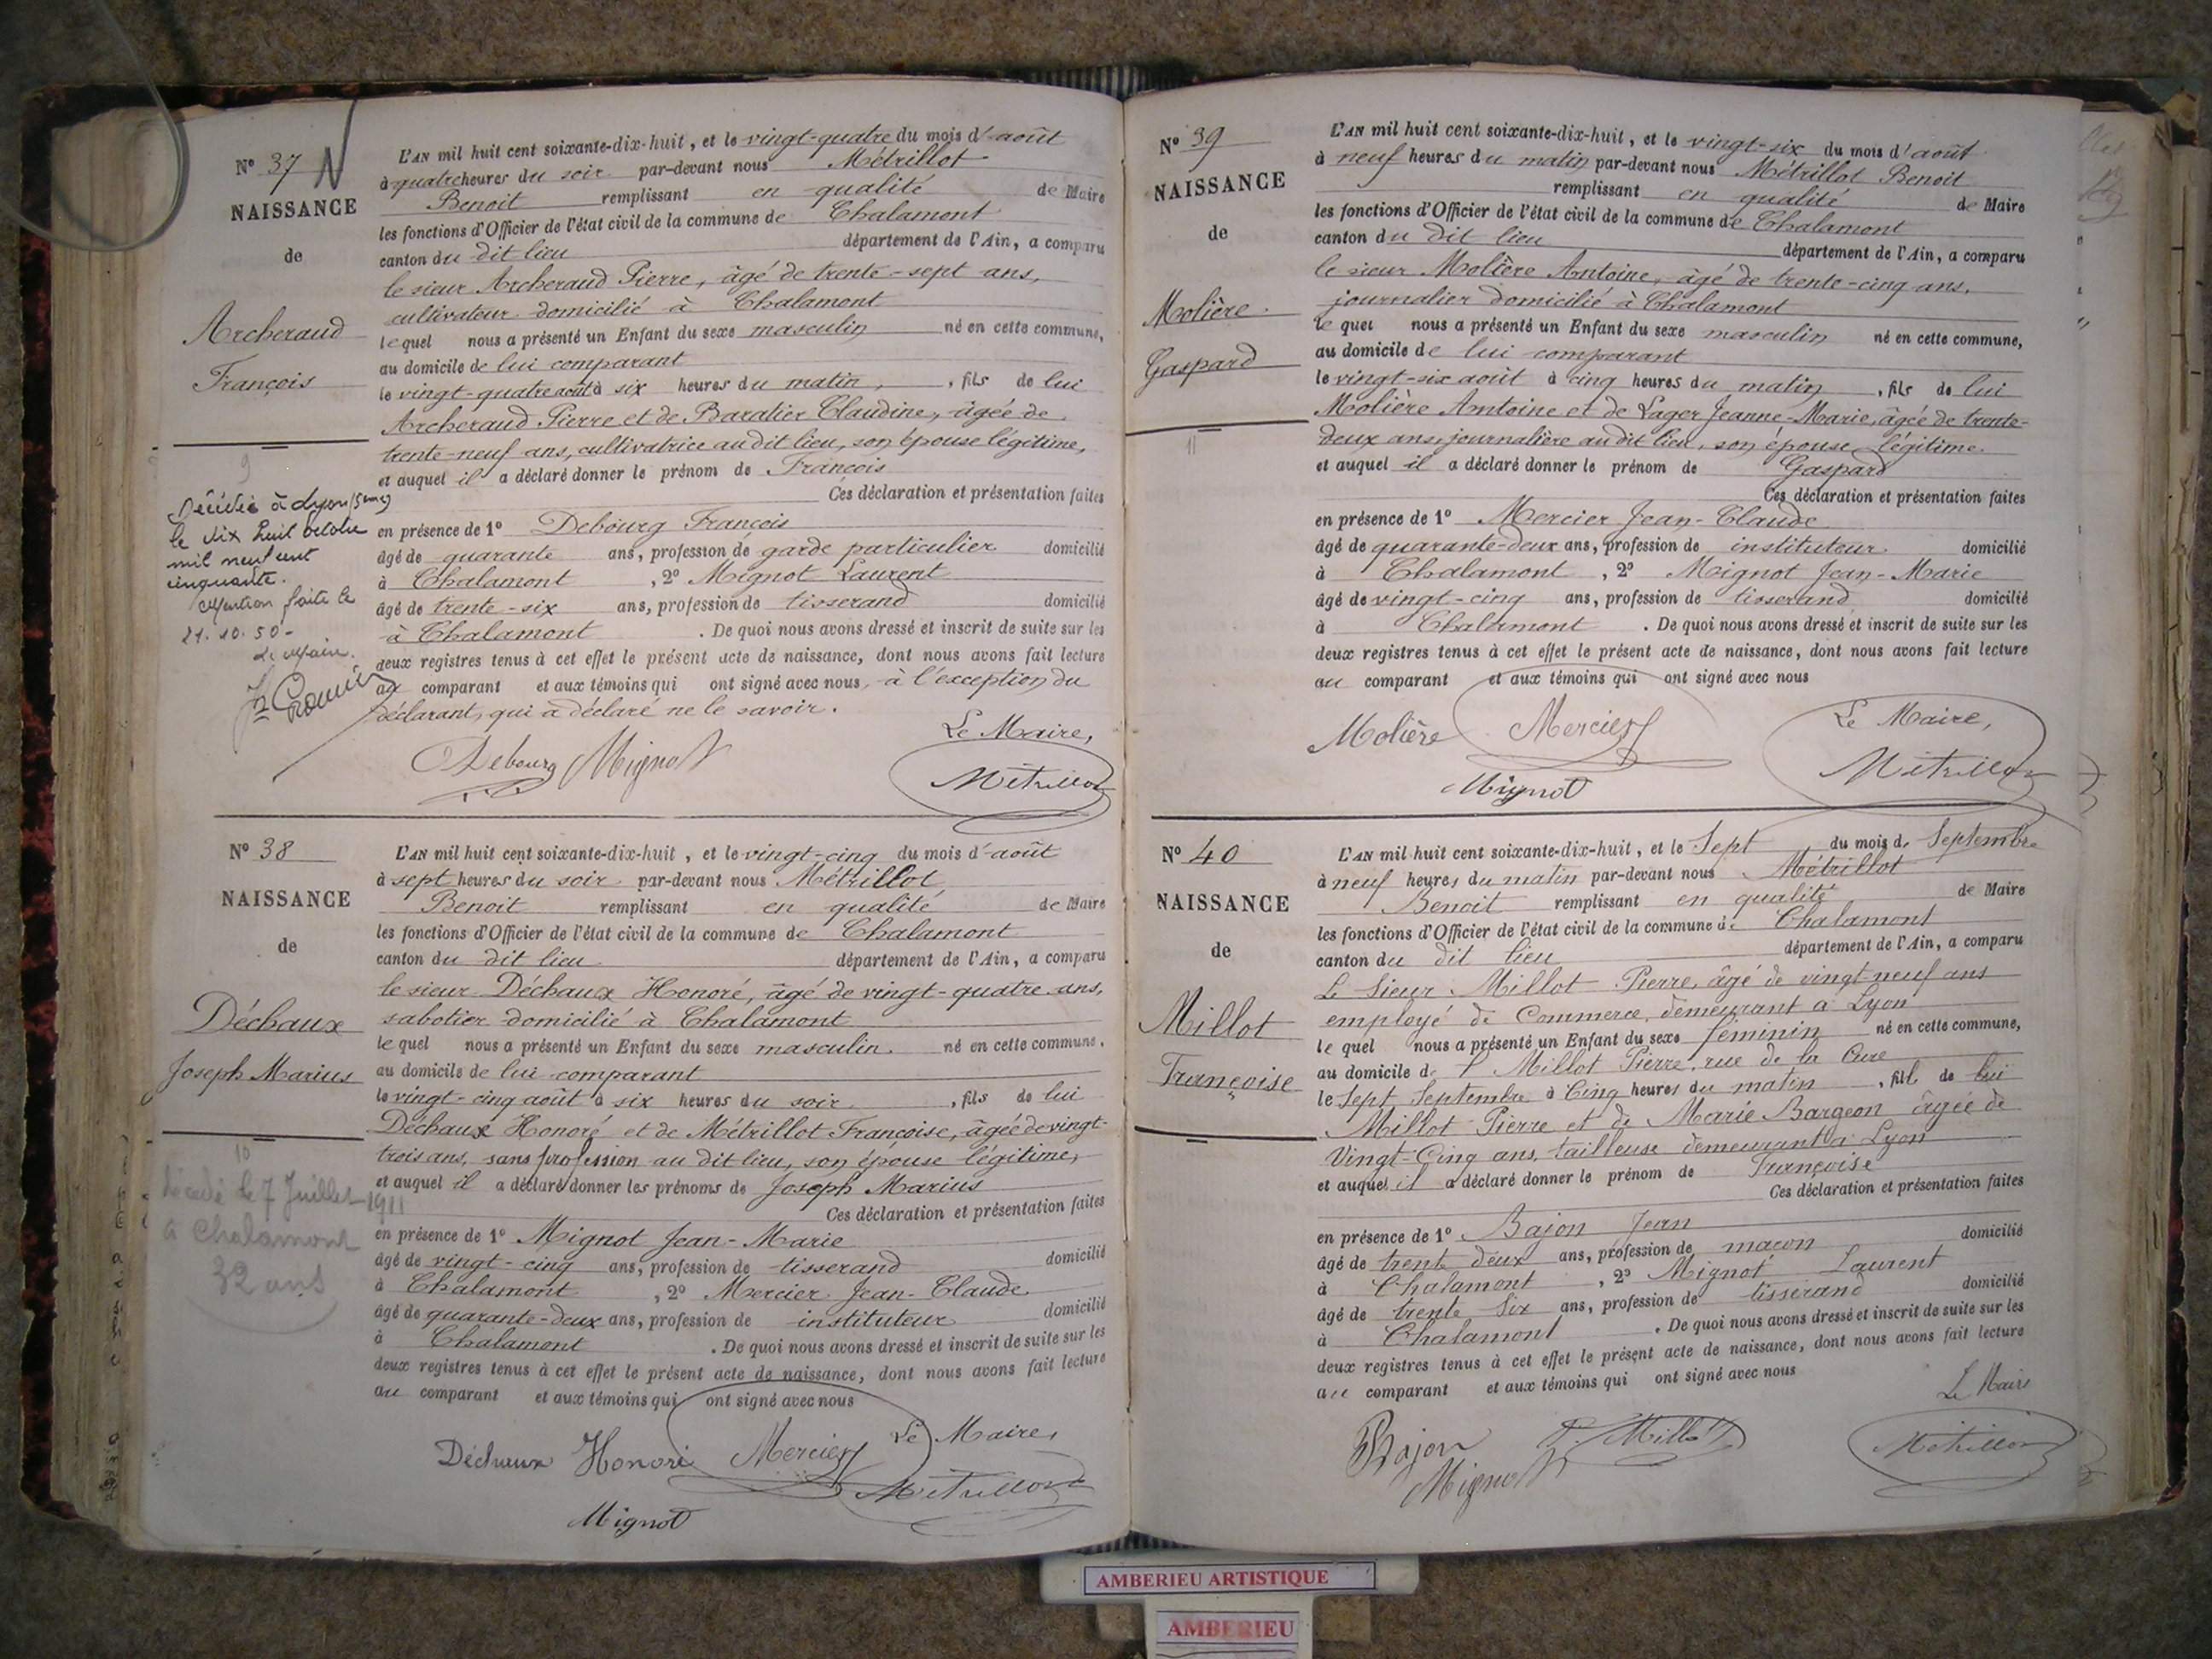 N° 37
NAISSANCE
de
Archeraud
François
L'AN mil huit cent soixante-dix-huit, et le vingt-quatre du mois d'août
à quatre heures du soir par-devant nous Métrillot
Benoit remplissant en qualité de Maire
les fonctions d'Officier de l'état civil de la commune de Chalamont
canton du dit lieu département de l'Ain, a comparu
le sieur Archeraud Pierre, âgé de trente-sept ans,
cultivateur domicilié à Chalamont
le quel nous a présenté un Enfant du sexe masculin né en cette commune,
au domicile de lui comparant
le vingt-quatre août à six heures du matin, fils de lui
Archeraud Pierre et de Baratier Claudine, âgée de
trente-neuf ans, cultivatrice au dit lieu, son épouse légitime,
et auquel il a déclaré donner le prénom de François
Ces déclaration et présentation faites
en présence de 1° Debourg François
âgé de quarante ans, profession de garde particulier domicilié
à Chalamont, 2° Mignot Laurent
âgé de trente-six ans, profession de tisserand domicilié
à Chalamont. De quoi nous avons dressé et inscrit de suite sur les
deux registres tenus à cet effet le présent acte de naissance, dont nous avons fait lecture
au comparant et aux témoins qui ont signé avec nous, à l'exception du
déclarant, qui a déclaré ne le savoir.
Le Maire,
Debourg Mignot Métrillot
9
Décédé à Lyon (5eme)
le dix huit octobre
mil neuf cent
cinquante.
Mention faite le
21.10.50-
Le Maire.
N° 38
NAISSANCE
de
Déchaux
Joseph Marius
L'AN mil huit cent soixante-dix-huit, et le vingt-cinq du mois d'août
à sept heures du soir par-devant nous Métrillot
Benoit remplissant en qualité de Maire
les fonctions d'Officier de l'état civil de la commune de Chalamont
canton du dit lieu département de l'Ain, a comparu
le sieur Déchaux Honoré, âgé de vingt-quatre ans,
sabotier domicilié à Chalamont
le quel nous a présenté un Enfant du sexe masculin. né en cette commune,
au domicile de lui comparant
le vingt-cinq août à six heures du soir, fils de lui
Déchaux Honoré et de Métrillot Françoise, âgée de vingt-
trois ans, sans profession au dit lieu, son épouse légitime,
et auquel il a déclaré donner les prénoms de Joseph Marius
Ces déclaration et présentation faites
en présence de 1° Mignot Jean-Marie
âgé de vingt-cinq ans, profession de tisserand domicilié
à Chalamont, 2° Mercier Jean-Claude
âgé de quarante-deux ans, profession de instituteur domicilié
à Chalamont. De quoi nous avons dressé et inscrit de suite sur les
deux registres tenus à cet effet le présent acte de naissance, dont nous avons fait lecture
au comparant et aux témoins qui ont signé avec nous
Le Maire,
Déchaux Honoré Mercier Métrillot
Mignot
10
décédé le 7 Juillet 1911
à Chalamont
32 ans
N° 39
NAISSANCE
de
Molière
Gaspard
11
L'AN mil huit cent soixante-dix-huit, et le vingt-six du mois d'août
à neuf heures du matin par-devant nous Métrillot Benoit
remplissant en qualité de Maire
les fonctions d'Officier de l'état civil de la commune de Chalamont
canton du dit lieu département de l'Ain, a comparu
le sieur Molière Antoine, âgé de trente-cinq ans,
journalier domicilié à Chalamont
le quel nous a présenté un Enfant du sexe masculin né en cette commune,
au domicile de lui comparant
le vingt-six août à cinq heures du matin, fils de lui
Molière Antoine et de Lager Jeanne-Marie, âgée de trente-
deux ans, journalière au dit lieu, son épouse légitime.
et auquel il a déclaré donner le prénom de Gaspard
Ces déclaration et présentation faites
en présence de 1° Mercier Jean-Claude
âgé de quarante-deux ans, profession de instituteur domicilié
à Chalamont, 2° Mignot Jean-Marie
âgé de vingt-cinq ans, profession de tisserand domicilié
à Chalamont. De quoi nous avons dressé et inscrit de suite sur les
deux registres tenus à cet effet le présent acte de naissance, dont nous avons fait lecture
au comparant et aux témoins qui ont signé avec nous
Le Maire,
Molière Mercier Métrillot
Mignot
N° 40
NAISSANCE
de
Millot
Françoise
L'AN mil huit cent soixante-dix-huit, et le Sept du mois de Septembre
à neuf heures du matin par-devant nous Métrillot
Benoit remplissant en qualité de Maire
les fonctions d'Officier de l'état civil de la commune de Chalamont
canton du dit lieu département de l'Ain, a comparu
Le Sieur Millot Pierre, âgé de vingt neuf ans
employé de Commerce, demeurant à Lyon
le quel nous a présenté un Enfant du sexe féminin né en cette commune,
au domicile de Millot Pierre, rue de la Cure
le Sept Septembre à Cinq heures du matin, fille de lui
Millot Pierre et de Marie Bargeon âgée de
Vingt-Cinq ans, tailleuse demeurant à Lyon
et auquel il a déclaré donner le prénom de Françoise
Ces déclaration et présentation faites
en présence de 1° Bajon Jean
âgé de trente deux ans, profession de maçon domicilié
à Chalamont, 2° Mignot Laurent
âgé de trente Six ans, profession de tisserand domicilié
à Chalamont. De quoi nous avons dressé et inscrit de suite sur les
deux registres tenus à cet effet le présent acte de naissance, dont nous avons fait lecture
au comparant et aux témoins qui ont signé avec nous
Le Maire
Bajon P. Millot Métrillot
Mignot
AMBERIEU ARTISTIQUE
AMBERIEU